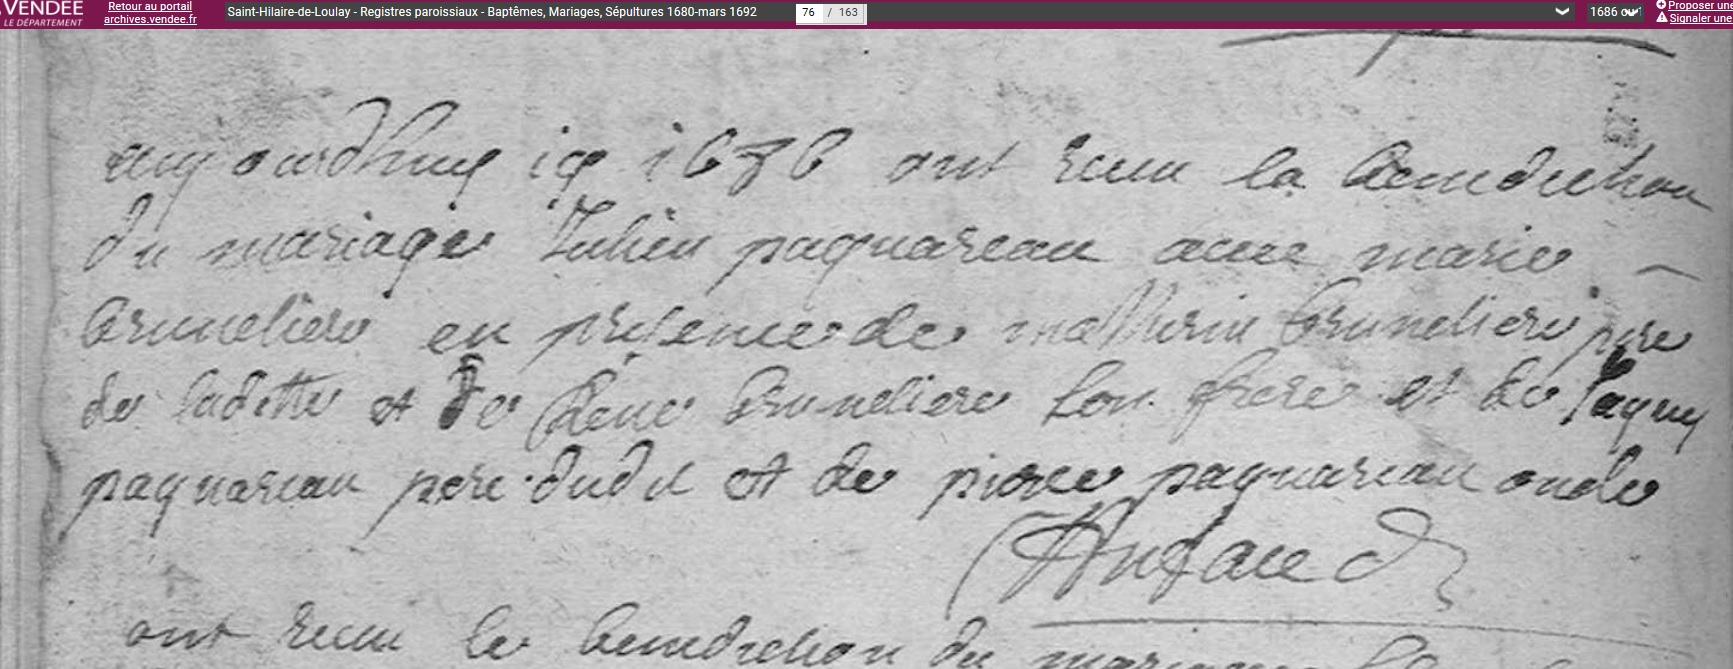 VENDÉE
LE DÉPARTEMENT
Retour au portail
archives.vendee.fr
Saint-Hilaire-de-Loulay - Registres paroissiaux - Baptêmes, Mariages, Sépultures 1680-mars 1692
76 / 163
1686
Proposer une
Signaler une
aujourdhuy ont receu la benediction
du mariage Julien paquareau avec marie
bruneliere en presence de mathurin bruneliere pere
de laditte et de René bruneliere son frere et de Jaques
paquareau pere dudit et de pierre paquareau oncle
ont receu la benediction du mariage